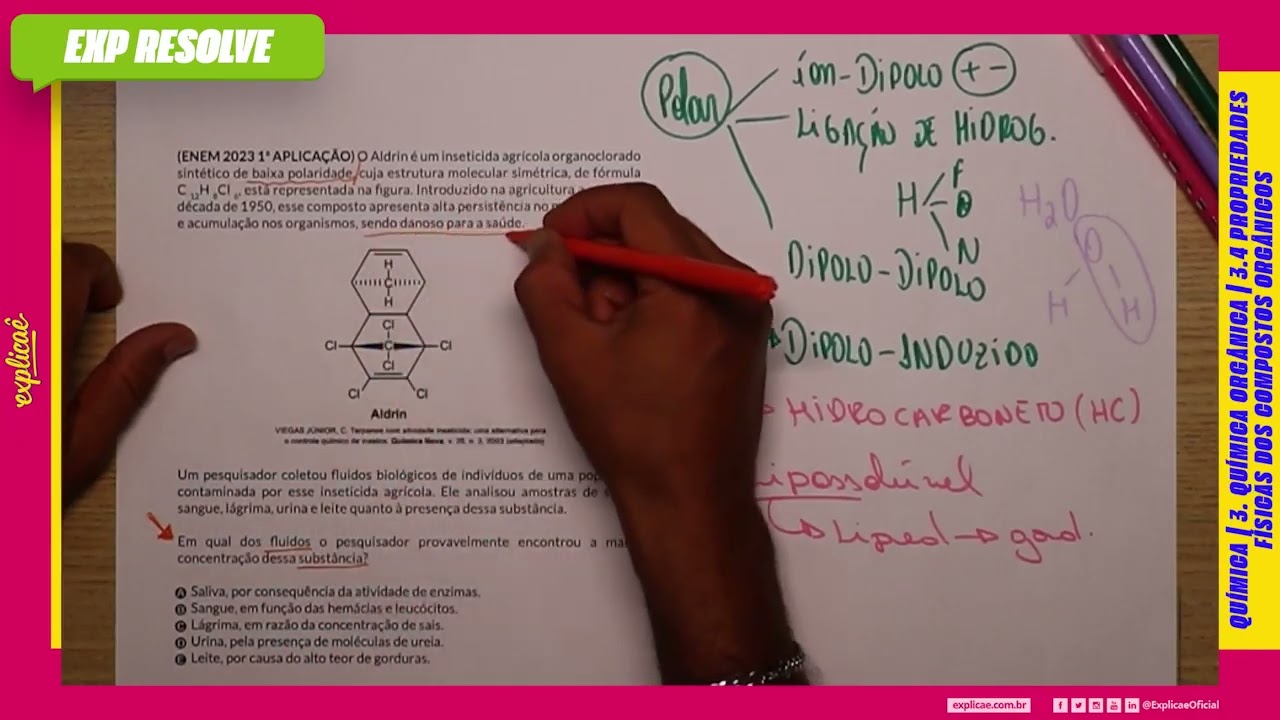 EXP RESOLVE
explicaê
(ENEM 2023 1ª APLICAÇÃO) O Aldrin é um inseticida agrícola organoclorado
sintético de baixa polaridade, cuja estrutura molecular simétrica, de fórmula
C12H8Cl6, está representada na figura. Introduzido na agricultura a
década de 1950, esse composto apresenta alta persistência no
e acumulação nos organismos, sendo danoso para a saúde.
H
C
H
Cl
Cl C Cl
Cl
Cl Cl
Aldrin
VIEGAS JÚNIOR, C. Terpenos com atividade inseticida: uma alternativa para
o controle químico de insetos. Química Nova, v. 26, n. 3, 2003 (adaptado)
Um pesquisador coletou fluidos biológicos de indivíduos de uma
contaminada por esse inseticida agrícola. Ele analisou amostras de
sangue, lágrima, urina e leite quanto à presença dessa substância.
Em qual dos fluidos o pesquisador provavelmente encontrou a
concentração dessa substância?
A Saliva, por consequência da atividade de enzimas.
B Sangue, em função das hemácias e leucócitos.
C Lágrima, em razão da concentração de sais.
D Urina, pela presença de moléculas de ureia.
E Leite, por causa do alto teor de gorduras.
Polar
íon-DiPOLO + -
LiGAÇÃO DE HiDROG.
F
H O
N
DiPOLO-DiPOLO
DiPOLO-INDUZiDO
HiDROCARBONETO (HC)
ipossolúvel
Liped → gord.
H2O
O
H H
QUÍMICA | 3. QUÍMICA ORGÂNICA | 3.4 PROPRIEDADES
FÍSICAS DOS COMPOSTOS ORGÂNICOS
explicae.com.br
@ExplicaeOficial